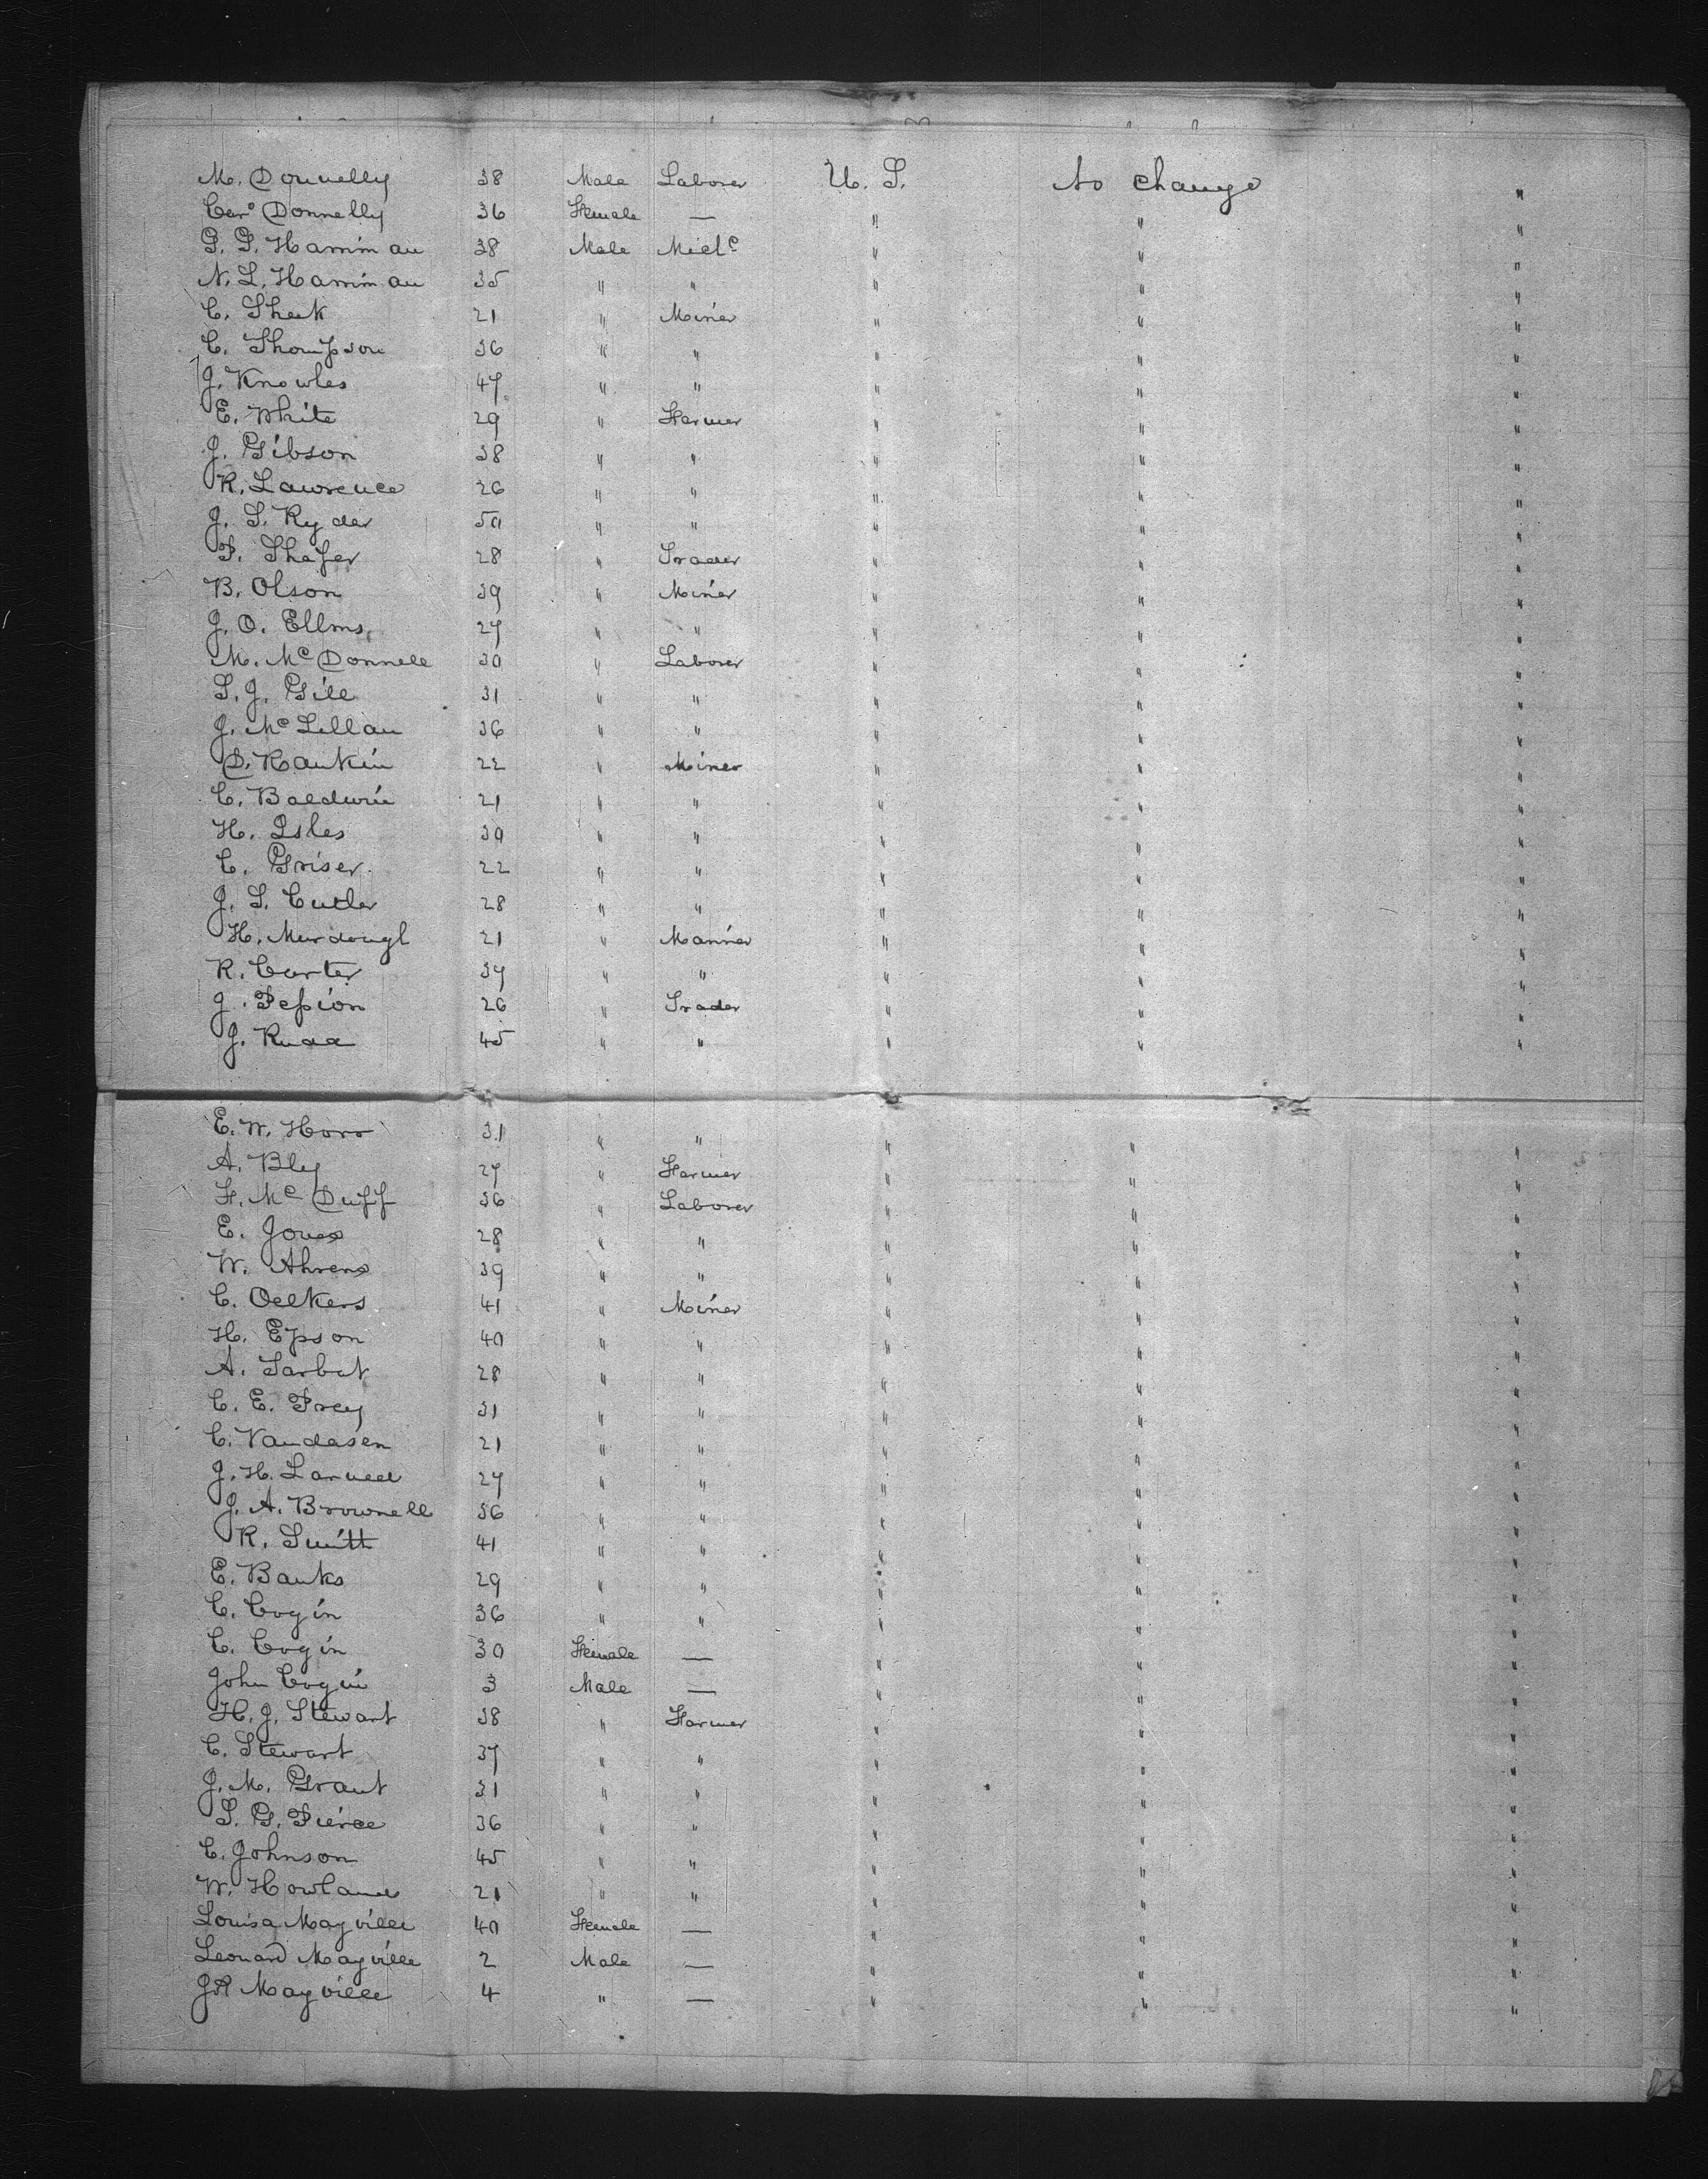 M. Donnelly 38 Male Laborer U. S. to change "
Caro Donnelly 36 Female — " " "
38 Male Mechc " " "
35 " " " " "
C. 21 " Miner " " "
C. Thompson 36 " " " " "
J. Knowles 47 " " " " "
E. White 29 " Farmer " " "
J. Gibson 38 " " " " "
R. Lawrence 26 " " " " "
J. S. Ryder 50 " " " " "
F. Shafer 28 " Trader " " "
B. Olson 39 " Miner " " "
J. O. Ellms 27 " " " " "
M. McDonnell 30 " Laborer " " "
T. J. Gill 31 " " " " "
J. McLellan 36 " " " " "
D. Rankin 22 " Miner " " "
C. Baldwin 21 " " " " "
H. Isles 30 " " " " "
C. Griser 22 " " " " "
J. S. Cutler 28 " " " " "
H. Murdough 21 " Mariner " " "
R. Carter 37 " " " " "
J. 26 " Trader " " "
J. 45 " " " " "
E. W. Horr 31 " " " " "
A. Bly 27 " Farmer " " "
F. McDuff 36 " Laborer " " "
E. Jones 28 " " " " "
W. Ahrens 39 " " " " "
C. Oelkers 41 " Miner " " "
H. Epson 40 " " " " "
A. Tarbet 28 " " " " "
C. E. Frey 31 " " " " "
C. Vandasen 21 " " " " "
J. H. 27 " " " " "
J. A. Brownell 36 " " " " "
R. Smith 41 " " " " "
E. Banks 29 " " " " "
C. Cogin 36 " " " " "
C. Cogin 30 Female — " " "
John Cogin 3 Male — " " "
H. J. Stewart 38 " Farmer " " "
C. Stewart 37 " " " " "
J. M. Grant 31 " " " " "
S. G. Pierce 36 " " " " "
C. Johnson 45 " " " " "
W. Howland 21 " " " " "
Louisa Mayville 40 Female — " " "
Leonard Mayville 2 Male — " " "
JR Mayville 4 " — " " "